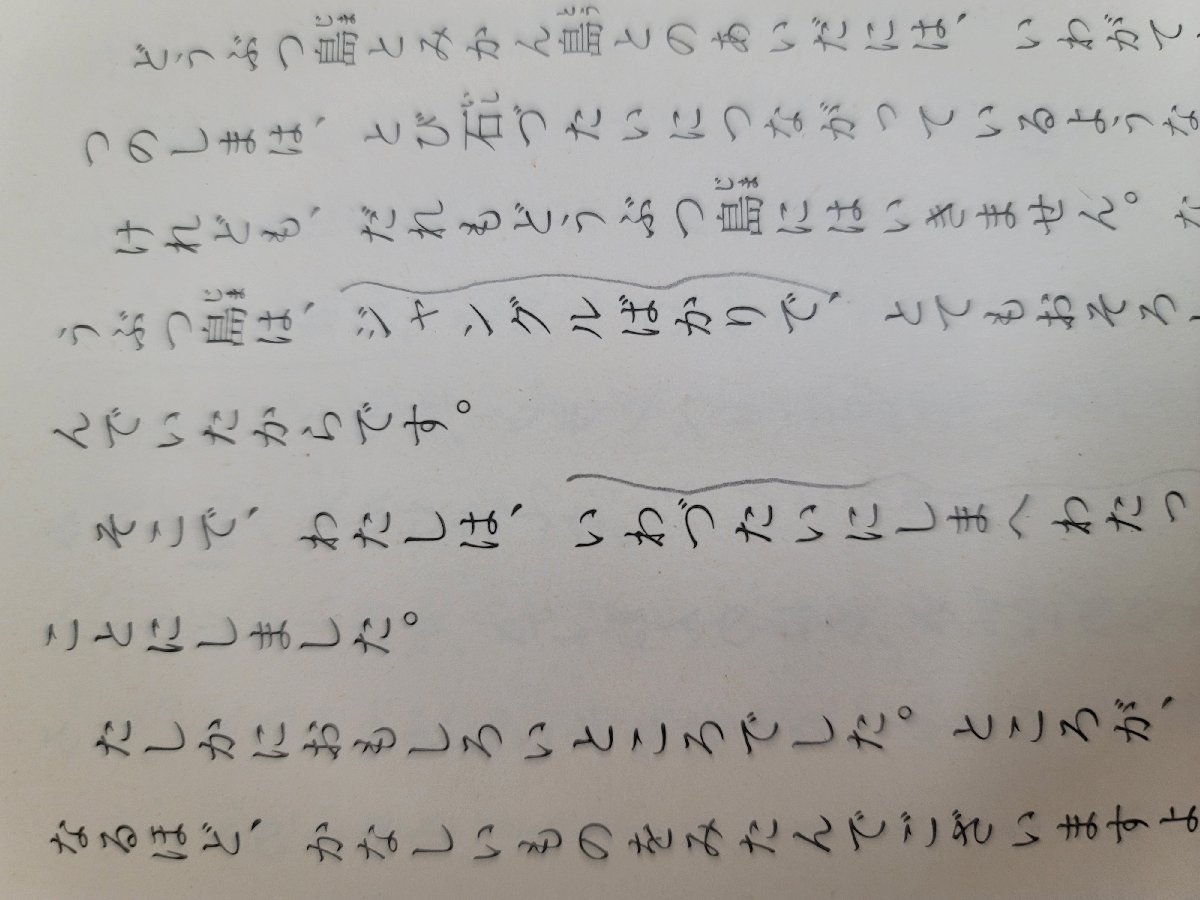 どうぶつ島とみかん島とのあいだには、いわがて
つのしまは、とび石づたいにつながっているような
けれども、だれもどうぶつ島にはいきません。な
うぶつ島は、ジャングルばかりで、とてもおそろ
んでいたからです。
そこで、わたしは、いわづたいにしまへわたっ
ことにしました。
たしかにおもしろいところでした。ところが、
なるほど、かなしいものをみたんでございますよ